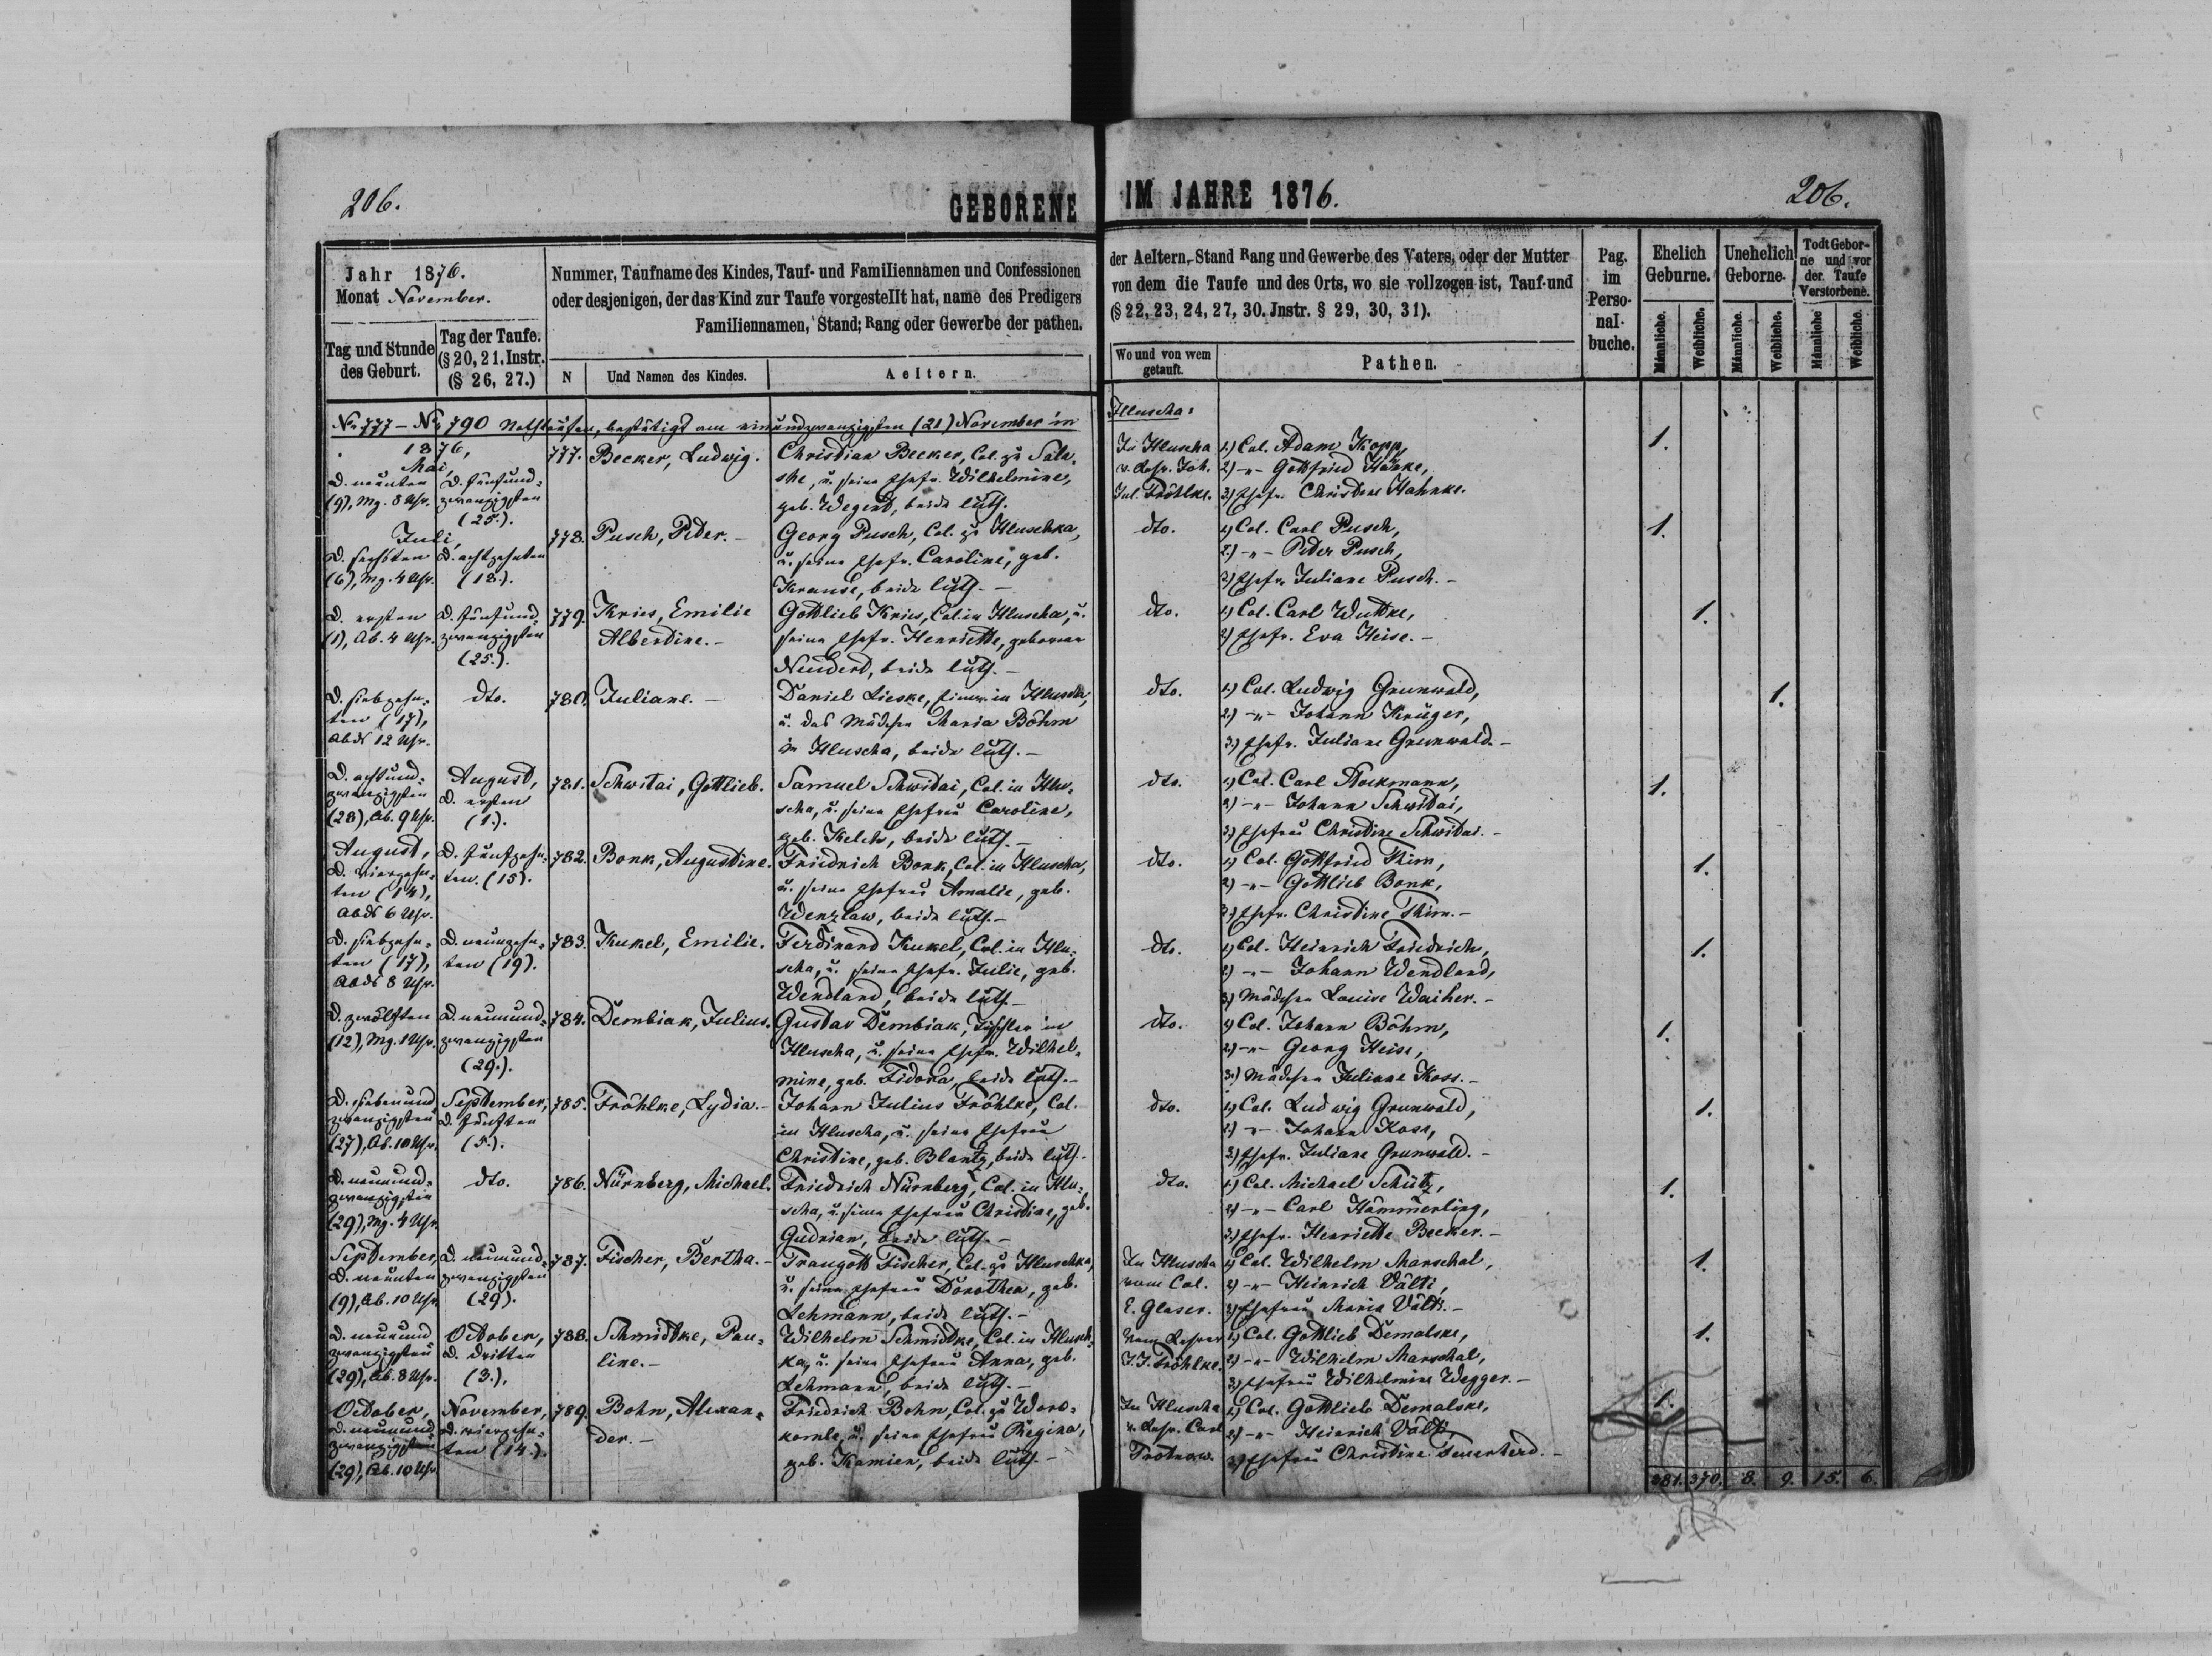 206.
GEBORENE
IM JAHRE 1876.
206.
Jahr 1876.
Monat November.
Tag und Stunde
des Geburt.
Tag der Taufe.
(§ 20, 21. Instr.
(§ 26, 27.)
Nummer, Taufname des Kindes, Tauf- und Familiennamen und Confessionen
oder desjenigen, der das Kind zur Taufe vorgestellt hat, name des Predigers
Familiennamen, Stand; Rang oder Gewerbe der pathen.
N
Und Namen des Kindes.
Aeltern.
der Aeltern,-Stand Rang und Gewerbe des Vaters, oder der Mutter
von dem die Taufe und des Orts, wo sie vollzogen ist, Tauf-und
(§ 22, 23, 24, 27, 30. Jnstr. § 29, 30, 31).
Wo und von wem
getauft.
Pathen.
Pag.
im
Perso-
nal-
buche.
Ehelich
Geburne.
Unehelich
Geborne.
Todt Gebor-
ne und vor
der Taufe
Verstorbene.
Männliche.
Weibliche.
Männliche.
Weibliche.
Männliche
Weibliche.
No 777 – No 790 Nothtaufen, bestätigt am einundzwanzigsten (21) November in
Hluscha:
1876,
Mai,
D. neunten
(9), Mg. 8 Uhr.
D. fünfund-
zwanzigsten
(25.).
777.
Becker, Ludwig.
Christian Becker, Col. zu Sala-
she, u. seine Ehefr. Wilhelmine,
geb. Wegert, beide luth.
In Hluscha
v. Lehr. Joh.
Jul. Fröhlke.
1.) Col. Adam Kopp,
2) -"- Gottfried Hanke,
3.) Ehefr. Christine Hahnke.
1.
Juli,
D. sechsten
(6), Mg. 4 Uhr.
D. achtzehnten
(18.).
778.
Pusch, Peter. -
Georg Pusch, Col. zu Hluschka,
u. seine Ehefr. Caroline, geb.
Krause, beide luth. -
dto.
1) Col. Carl Pusch,
2.) -"- Peter Pusch,
3) Ehefr. Juliane Pusch. -
1.
D. ersten
(1), Ab. 4 Uhr.
D. fünfund-
zwanzigsten
(25.).
779.
Kries, Emilie
Albertine. -
Gottlieb Kries, Col. in Hluscha, u.
seine Ehefr. Henriette, geborene
Neudert, beide luth. -
dto.
1) Col. Carl Wuttke,
2) Ehefr. Eva Heise. -
1.
D. siebzehn-
ten (17),
Abds 12 Uhr.
dto.
780.
Juliane. -
Daniel Lieske, in Hluscha,
u. das Mädchen Maria Böhm
in Hluscha, beide luth. -
dto.
1.) Col. Ludwig Grunwald,
2.) -"- Johann Krüger,
3.) Ehefr. Juliane Grunwald. -
1.
D. achtund-
zwanzigsten
(28), Ab. 9 Uhr.
August,
D. ersten
(1.).
781.
Schwitai, Gottlieb.
Samuel Schwitai, Col. in Hlu-
scha, u. seine Ehefrau Caroline,
geb. Kelch, beide luth. -
dto.
1) Col. Carl Stockmann,
2) -"- Johann Schwitai,
3) Ehefrau Christine Schwitai. -
1.
August,
D. vierzehn-
ten (14),
Abds 6 Uhr.
D. fünfzehn-
ten (15).
782.
Bonk, Augustine.
Friedrich Bonk, Col. in Hluscha,
u. seine Ehefrau Amalie, geb.
Wenzlaw, beide luth. -
dto.
1) Col. Gottfried Thim,
2) -"- Gottlieb Bonk,
3) Ehefr. Christine Thim. -
1.
D. siebzehn-
ten (17),
Abds 8 Uhr.
D. neunzehn-
ten (19).
783.
Kukel, Emilie.
Ferdinand Kukel, Col. in Hlu-
scha, u. seine Ehefr. Julie, geb.
Wendland, beide luth. -
dto.
1) Col. Heinrich Friedrich,
2) -"- Johann Wendland,
3) Mädchen Louise Waiher. -
1.
D. zwölften
(12), Mg. 1 Uhr.
D. neunund-
zwanzigsten
(29.).
784.
Dembiak, Julius.
Gustav Dembiak, Tischler in
Hluscha, u. seine Ehefr. Wilhel-
mine, geb. Fidora, beide luth. -
dto.
1) Col. Johann Böhm,
2) -"- Georg Heise,
3.) Mädchen Juliane Koss. -
1.
D. siebenund
zwanzigsten
(27), Ab. 10 Uhr.
September,
D. fünften
(5.).
785.
Fröhlke, Lydia. -
Johann Julius Fröhlke, Col.
in Hluscha, u. seine Ehefrau
Christine, geb. Blantz, beide luth.
dto.
1) Col. Ludwig Grunwald,
2) -"- Johann Koss,
3) Ehefr. Juliane Grunwald. -
1.
D. neunund-
zwanzigsten
(29), Mg. 4 Uhr.
dto.
786.
Nürnberg, Michael.
Friedrich Nürnberg, Col. in Hlu-
scha, u. seine Ehefrau Christine, geb.
Gudrian, beide luth. -
dto.
1) Col. Michael Schütz,
2) -"- Carl Hämmerling,
3) Ehefr. Henriette Becker. -
1.
September,
D. neunten
(9), Ab. 10 Uhr
D. neunund-
zwanzigsten
(29).
787.
Fischer, Bertha. -
Traugott Fischer, Col. zu Hluschka,
u. seine Ehefrau Dorothea, geb.
Lehmann, beide luth. -
In Hluscha
vom Col.
E. Glaser.
1) Col. Wilhelm Marschal,
2) -"- Heinrich Välti,
3) Ehefrau Maria Välti. -
1.
D. neunund
zwanzigsten
(29), Ab. 8 Uhr.
October,
D. dritten
(3.).
788.
Schmidtke, Pau-
line. -
Wilhelm Schmidtke, Col. in Hlusch-
ka, u. seine Ehefrau Anna, geb.
Lehmann, beide luth. -
Vom Lehrer
J. J. Fröhlke.
1) Col. Gottlieb Demalske,
2) -"- Wilhelm Marschal,
3) Ehefrau Wilhelmine Wegger. -
1.
October,
D. neunund
zwanzigsten
(29), Ab. 10 Uhr
November,
D. vierzehn-
ten (14.).
789.
Bohn, Alexan-
der. -
Friedrich Bohn, Col. zu Woro-
komle, u. seine Ehefrau Regina,
geb. Kamien, beide luth. -
In Hluscha
v. Lehr. Carl
1) Col. Gottlieb Demalske,
2) -"- Heinrich Välti,
3) Ehefrau Christine Feuerherd. -
1.
381. 370. 8. 9. 15. 6.